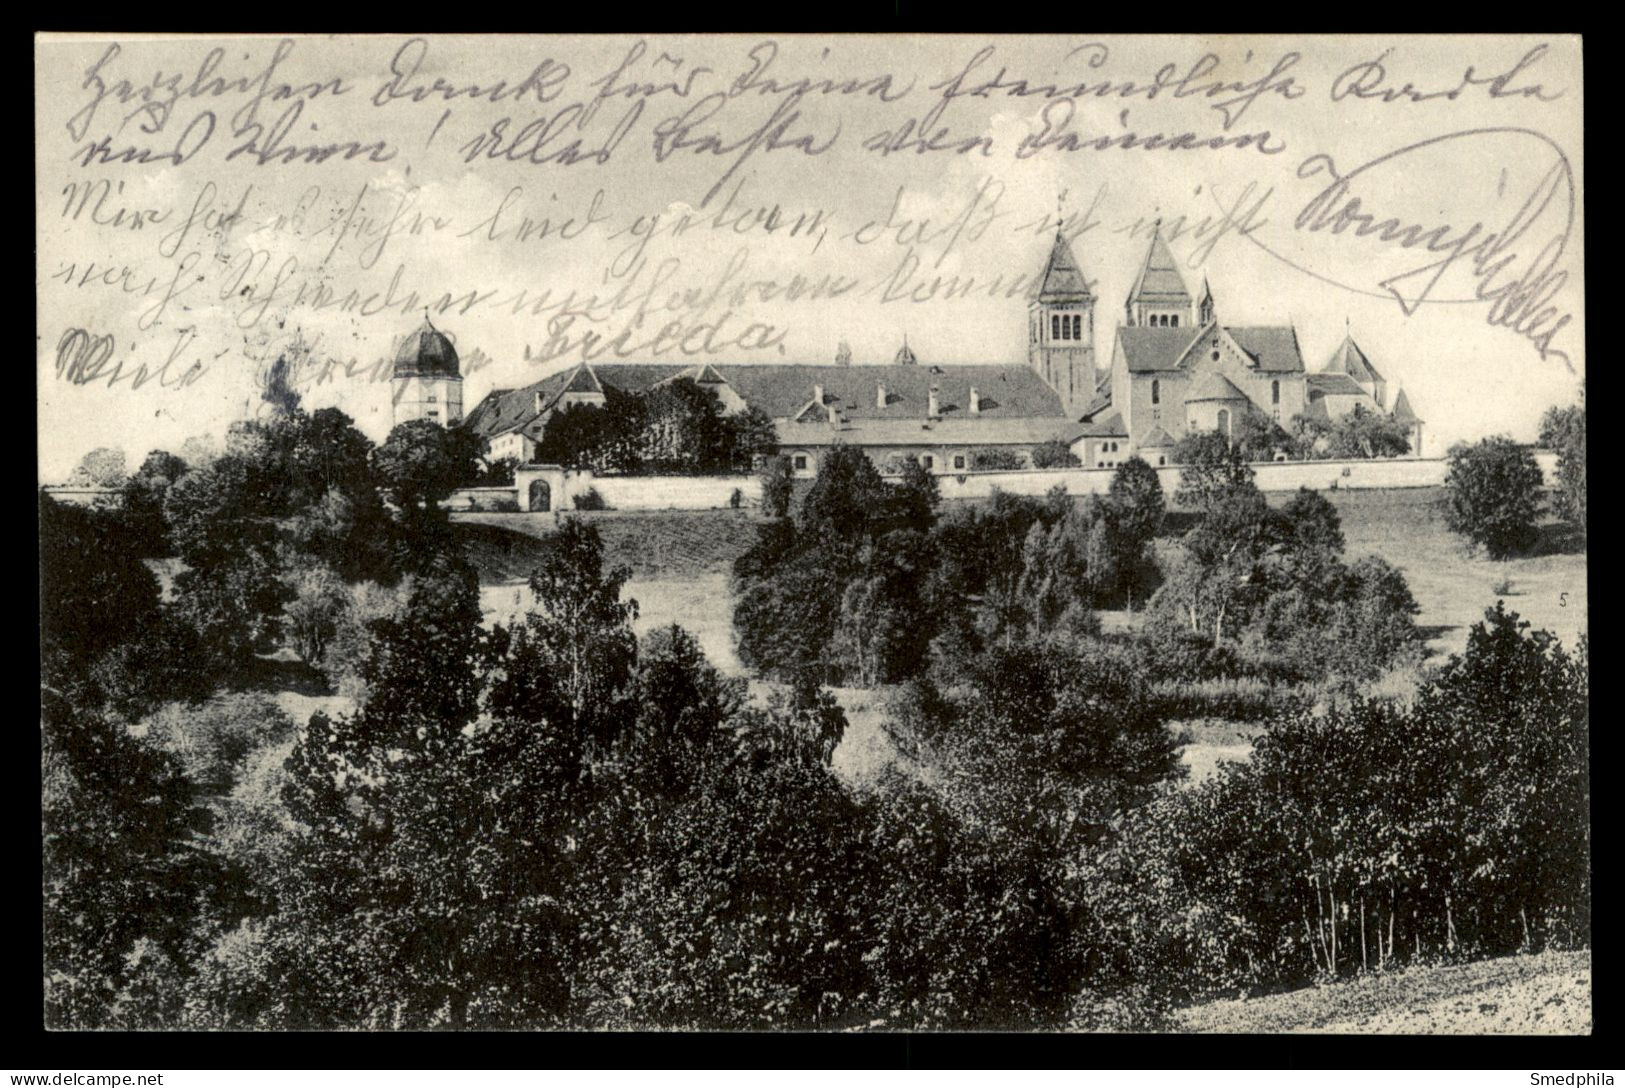 Herzlichen Dank für Deine freundliche Karte
aus Wien! Alles Beste von Deinem
Mir hat es sehr leid getan, daß ich nicht
nach Schweden mitfahren konnte
Viele Grüße Frieda.
5
delcampe.net
Smedphila